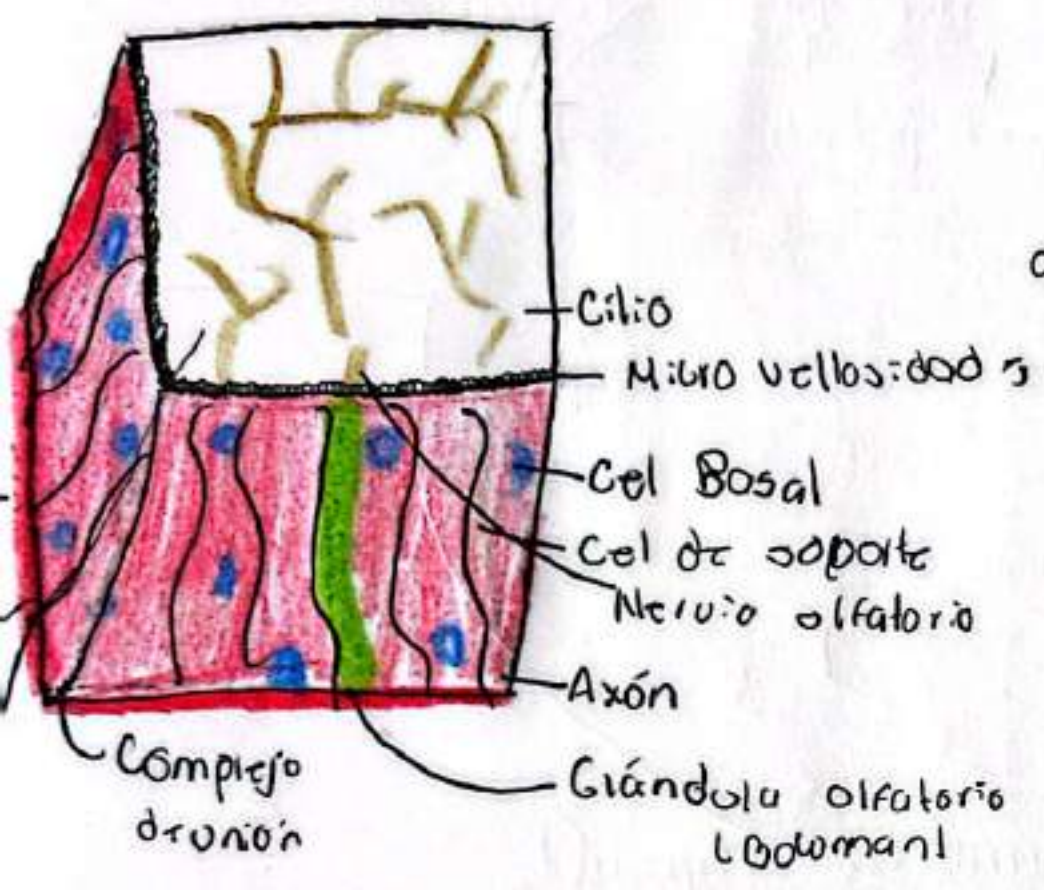 Cilio
Micro vellosidad s
Cel Basal
Cel de soporte
Nervio olfatorio
Axón
Complejo
de unión
Glándula olfatoria
(Bowman)